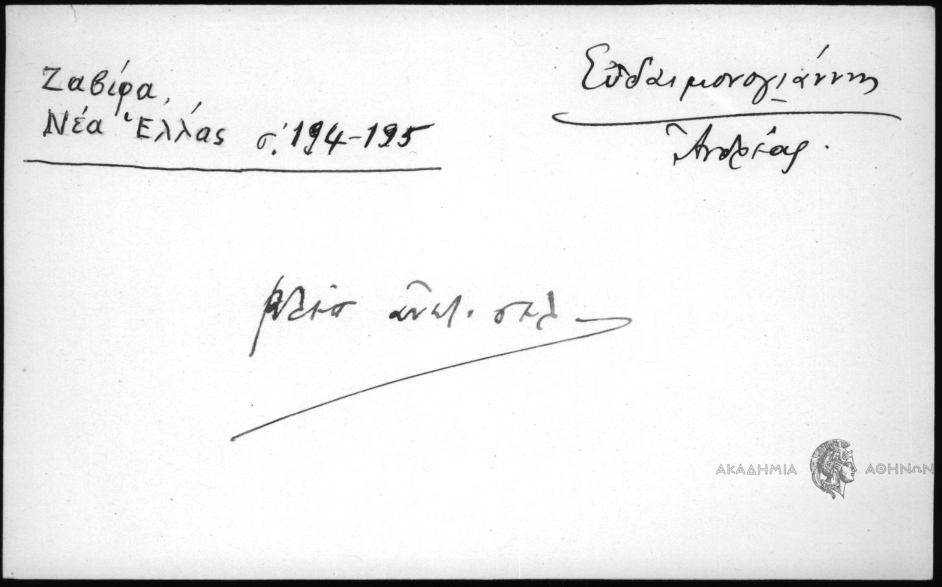 Ζαβίρα,
Νέα Ἑλλάς σ. 194-195
Εὐδαιμονογιάννης
Ἀνδρέας.
βλέπ ἀνωτ. σελ
ΑΚΑΔΗΜΙΑ ΑΘΗΝΩΝ